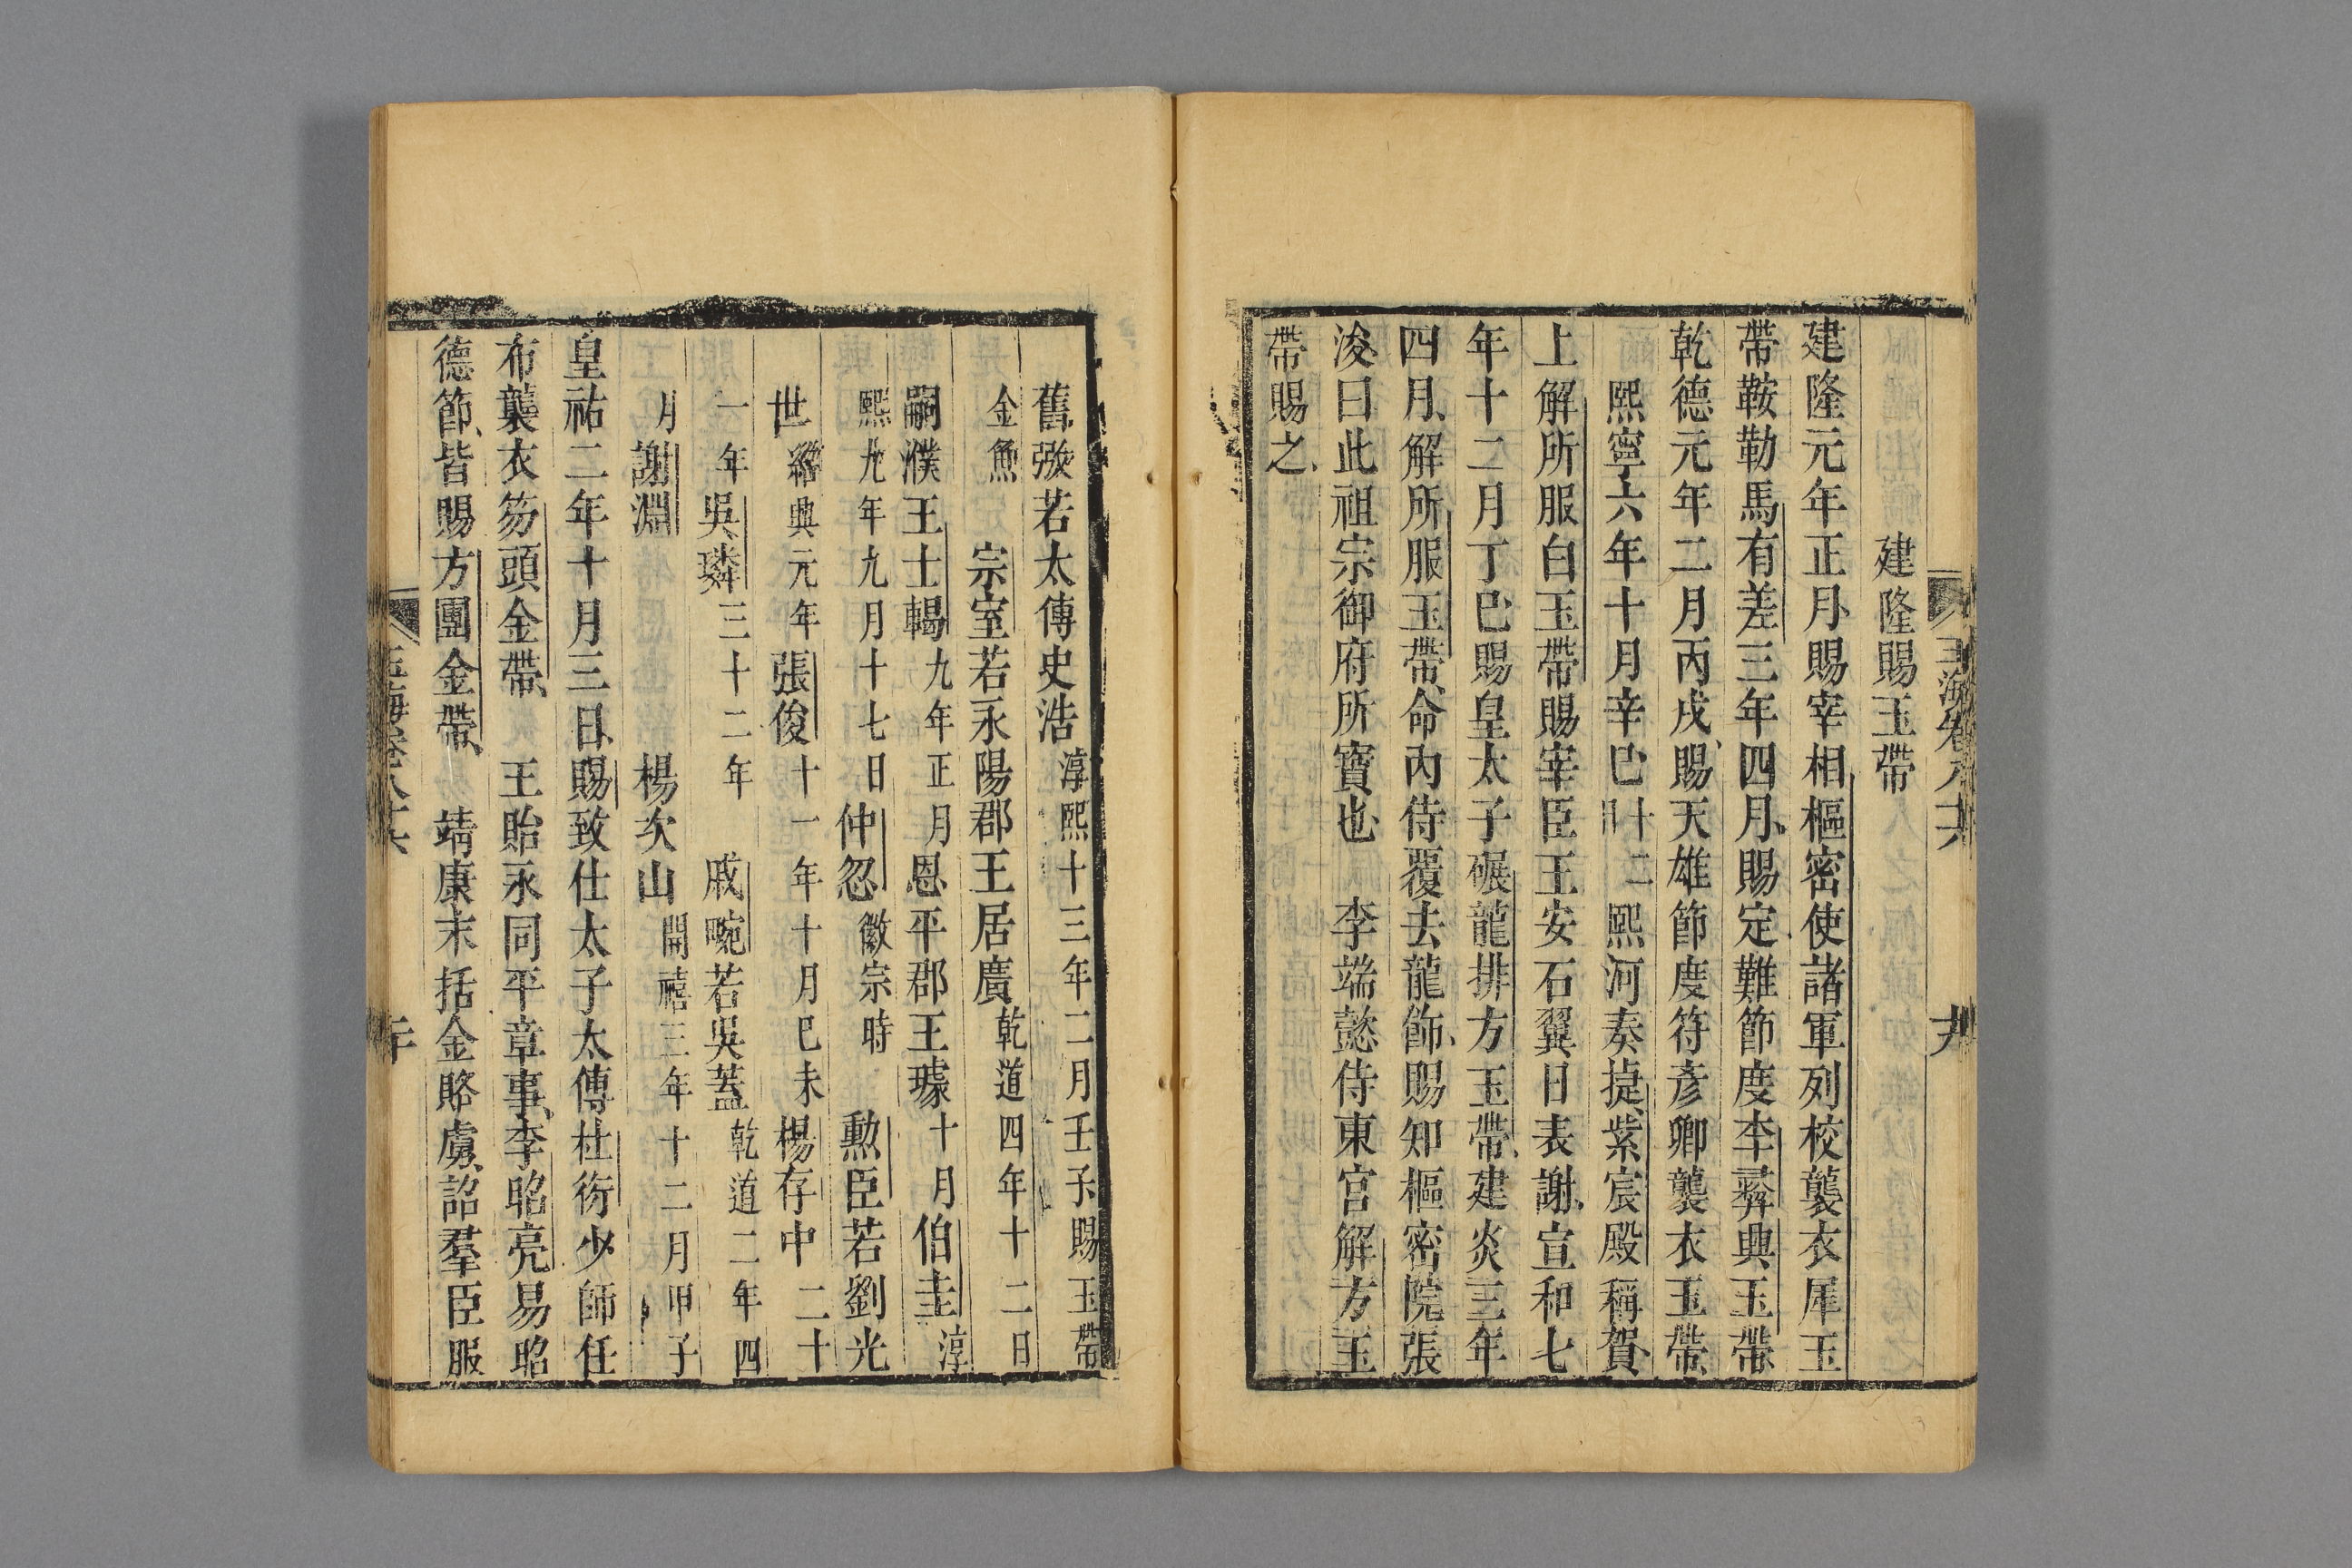 玉海卷八十六
建隆賜玉帶
建隆元年正月賜宰相樞密使諸軍列校襲衣犀玉
帶鞍勒馬有差三年四月賜定難節度李彞興玉帶
乾德元年二月丙戌賜天雄節度符彦卿襲衣玉帶
熙寧六年十月辛巳十二日熙河奏捷紫宸殿稱賀
上解所服白玉帶賜宰臣王安石翼日表謝宣和七
年十二月丁巳賜皇太子碾龍排方玉帶建炎三年
四月解所服玉帶命內侍覆去龍飾賜知樞密院張
浚曰此祖宗御府所寶也　李端懿侍東宫解方玉
帶賜之
舊弼若太傅史浩淳熙十三年二月壬子賜玉帶
金魚　宗室若永陽郡王居廣乾道四年十二日
嗣濮王士輵九年正月恩平郡王璩十月伯圭淳
熙九年九月十七日仲忽徽宗時　勲臣若劉光
世紹興元年張俊十一年十月巳未楊存中二十
一年吳璘三十二年　戚畹若吳蓋乾道二年四
月謝淵　楊次山開禧三年十二月甲子
皇祐二年十月三日賜致仕太子太傅杜衍少師任
布襲衣笏頭金帶　王貽永同平章事李昭亮易昭
德節皆賜方團金帶　靖康末括金賂虜詔羣臣服
玉海卷八十六